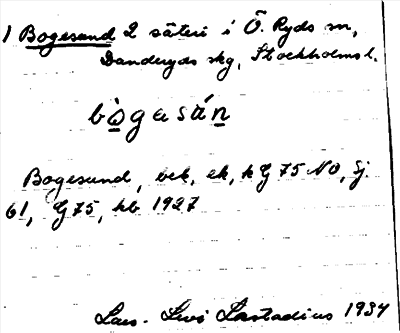 1 Bogesund 2 säteri i Ö. Ryds sn,
Danderyds skg, Stockholms l.
bògasán
Bogesund, bek, ek, k G 75 NO, Sj.
61, G 75, hb 1927
Lars-Levi Læstadius 1934